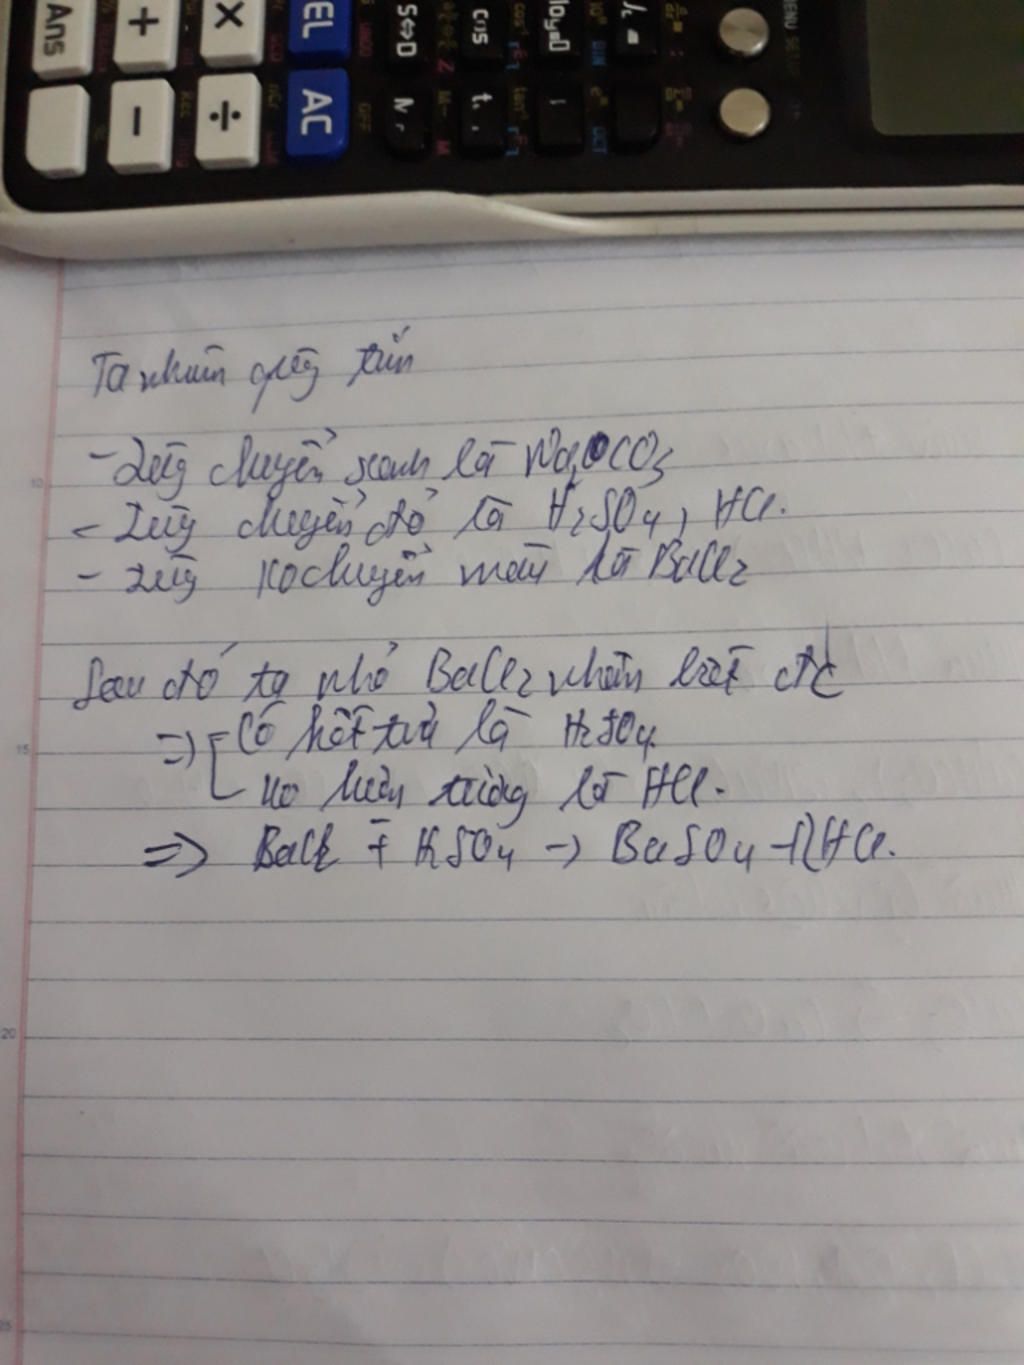 Ans + × DEL S⇔D cos MENU SETUP
− ÷ AC OFF
Ta nhúm quỳ tím
- Quỳ chuyển xanh là Na2CO3
- Quỳ chuyển đỏ là H2SO4, HCl.
- Quỳ ko chuyển màu là BaCl2
Sau đó ta nhỏ BaCl2 nhận biết đc
=> Có kết tủa là H2SO4
ko hiện tượng là HCl.
=> BaCl2 + H2SO4 -> BaSO4 + 2HCl.
10
15
20
25